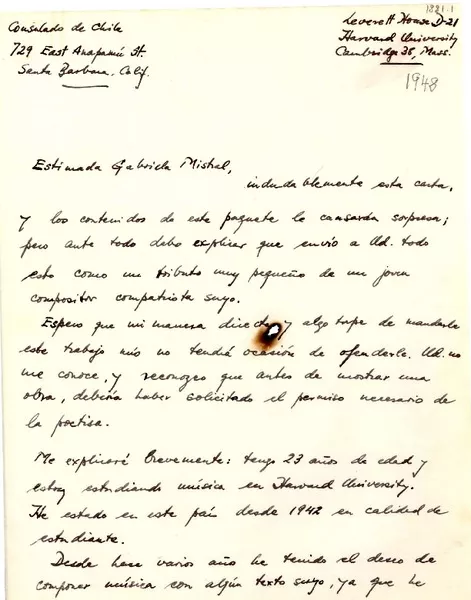 1821.1
Consulado de Chile
729 East Anapamú St.
Santa Barbara, Calif.
Leverett House D-21
Harvard University
Cambridge 38, Mass.
1948
Estimada Gabriela Mistral,
indudablemente esta carta,
y los contenidos de este paquete le causarán sorpresa;
pero ante todo debo explicar que envío a Ud. todo
esto como un tributo muy pequeño de un joven
compositor compatriota suyo.
Espero que mi manera directa y algo torpe de mandarle
este trabajo mío no tendrá ocasión de ofenderle. Ud. no
me conoce, y reconozco que antes de mostrar una
obra, debería haber solicitado el permiso necesario de
la poetisa.
Me explicaré brevemente: tengo 23 años de edad y
estoy estudiando música en Harvard University.
He estado en este país desde 1942 en calidad de
estudiante.
Desde hace varios año he tenido el deseo de
componer música con algún texto suyo, ya que he